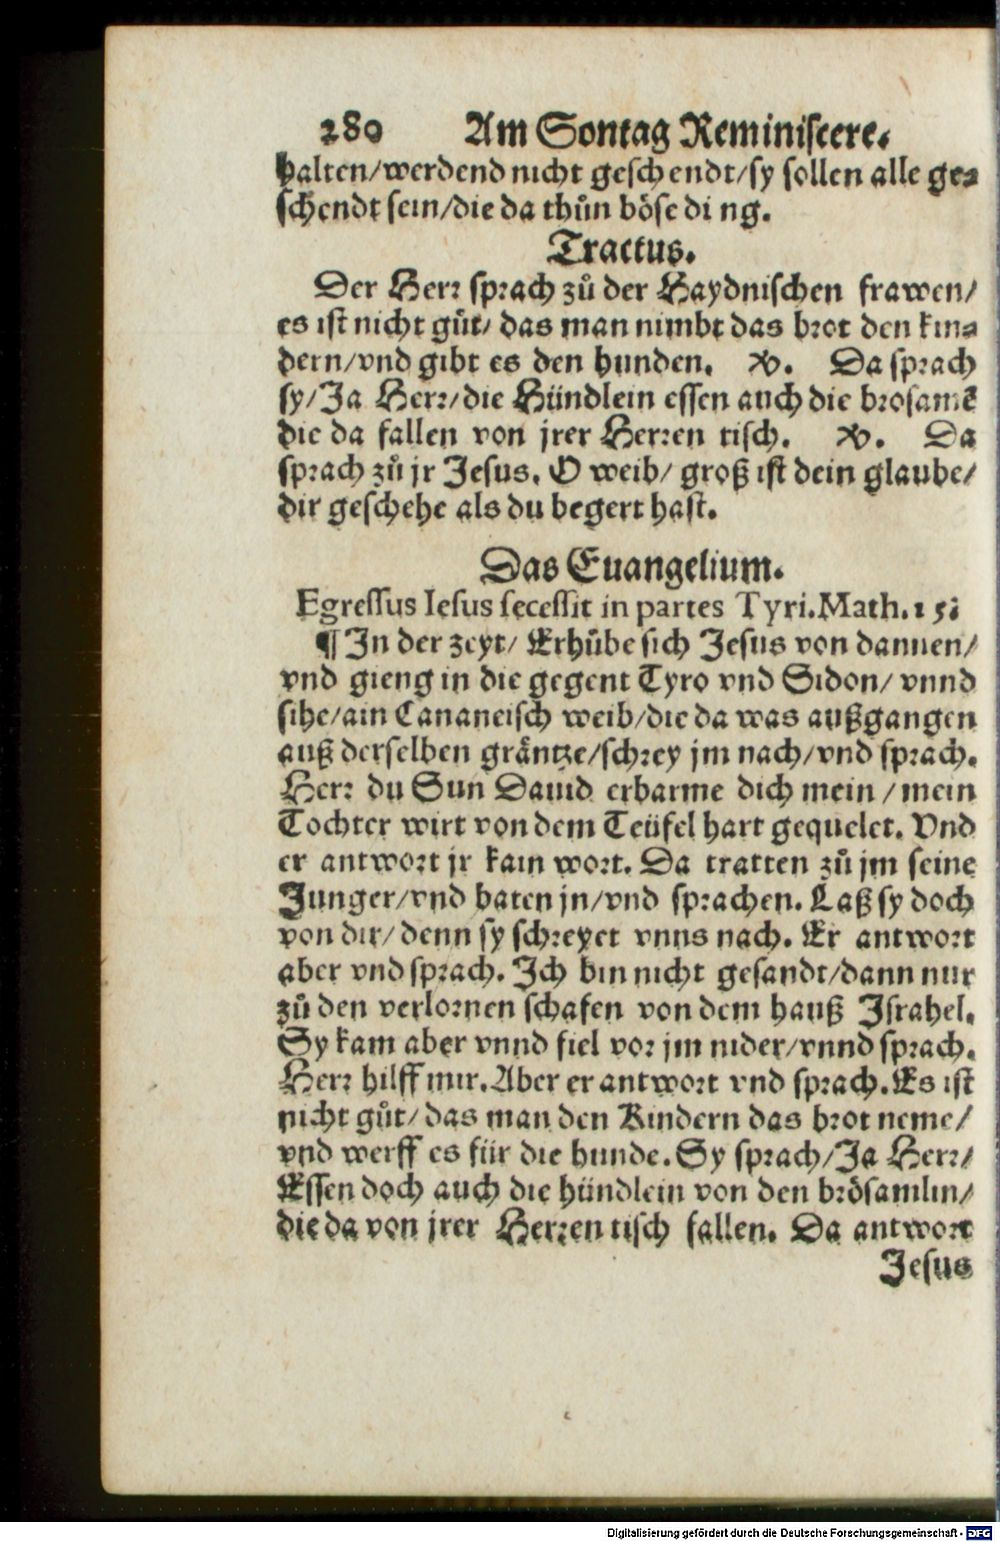 280 Am Sontag Reminiscere.
halten/werdend nicht geschendt/sy sollen alle ge-
schendt sein/die da thůn böse ding.
Tractus.
Der Herr sprach zů der Haydnischen frawen/
es ist nicht gůt/ das man nimbt das brot den kin-
dern/vnd gibt es den hunden. ℣. Da sprach
sy/Ja Herr/die Hündlein essen auch die brosamẽ
die da fallen von jrer Herren tisch. ℣. Da
sprach zů jr Jesus. O weib/ groß ist dein glaube/
dir geschehe als du begert hast.
Das Euangelium.
Egressus Iesus secessit in partes Tyri. Math. 15.
¶ In der zeyt/ Erhůbe sich Jesus von dannen/
vnd gieng in die gegent Tyro vnd Sidon/ vnnd
sihe/ain Cananeisch weib/die da was außgangen
auß derselben gräntze/schrey jm nach/vnd sprach.
Herr du Sun Dauid erbarme dich mein/mein
Tochter wirt von dem Teüfel hart gequelet. Vnd
er antwort jr kain wort. Da tratten zů jm seine
Junger/vnd baten jn/vnd sprachen. Laß sy doch
von dir/ denn sy schreyet vnns nach. Er antwort
aber vnd sprach. Ich bin nicht gesandt/dann nur
zů den verlornen schafen von dem hauß Israhel.
Sy kam aber vnnd fiel vor jm nider/vnnd sprach.
Herr hilff mir. Aber er antwort vnd sprach. Es ist
nicht gůt/ das man den Kindern das brot neme/
vnd werff es für die hunde. Sy sprach/Ja Herr/
Essen doch auch die hündlein von den brösamlin/
die da von jrer Herren tisch fallen. Da antwort
Jesus
Digitalisierung gefördert durch die Deutsche Forschungsgemeinschaft - DFG